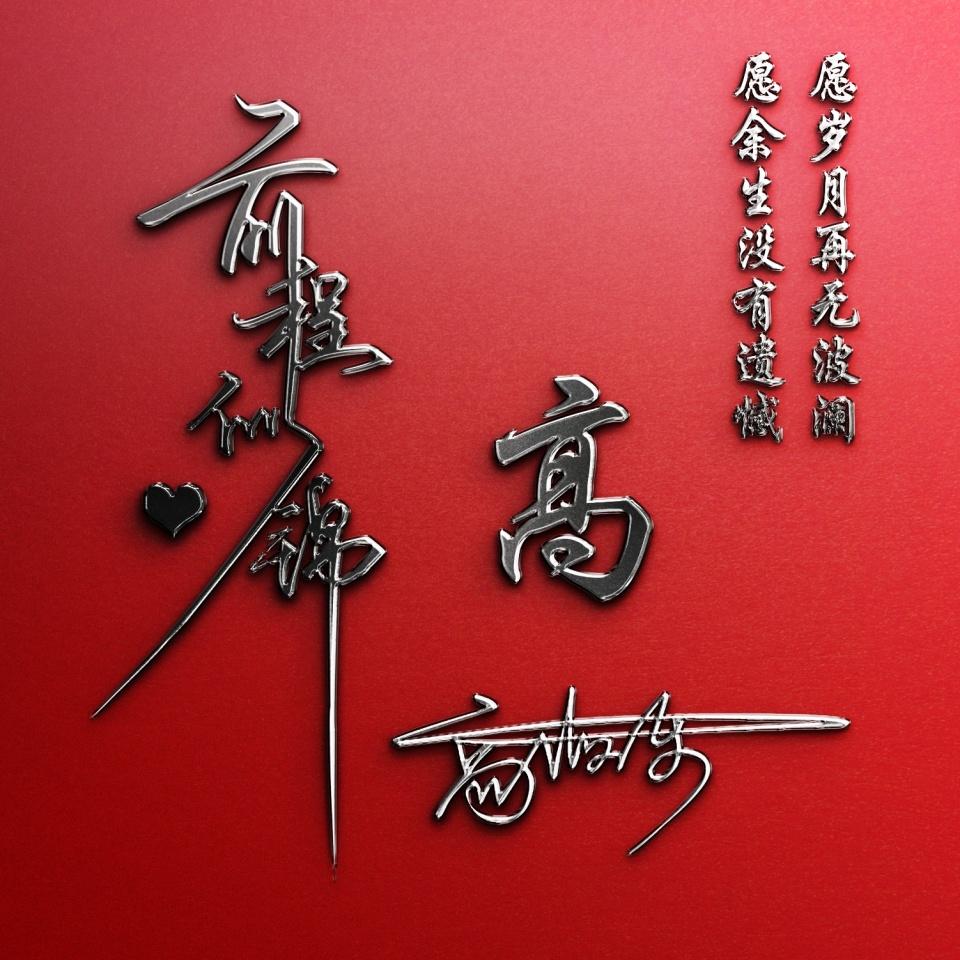 愿岁月再无波澜
愿余生没有遗憾
前程似锦
高